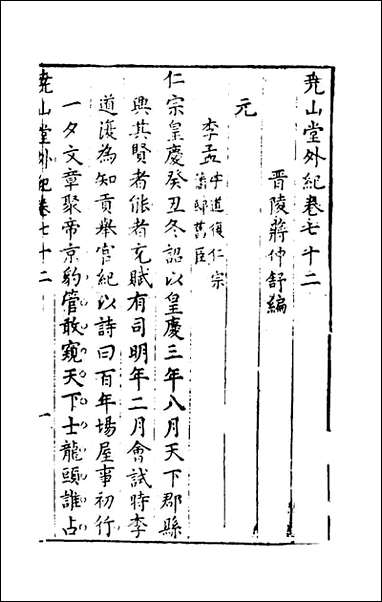 堯山堂外紀卷七十二
晋陵蔣仲舒編
元
李孟字道復仁宗
潛邸舊臣
仁宗皇慶癸丑冬詔以皇慶三年八月天下郡縣
興其賢者能者充賦有司明年二月會試時李
道復為知貢舉官紀以詩曰百年場屋事初行
一夕文章聚帝京豹管敢窺天下士龍頭誰占
堯山堂外紀卷七十二
一